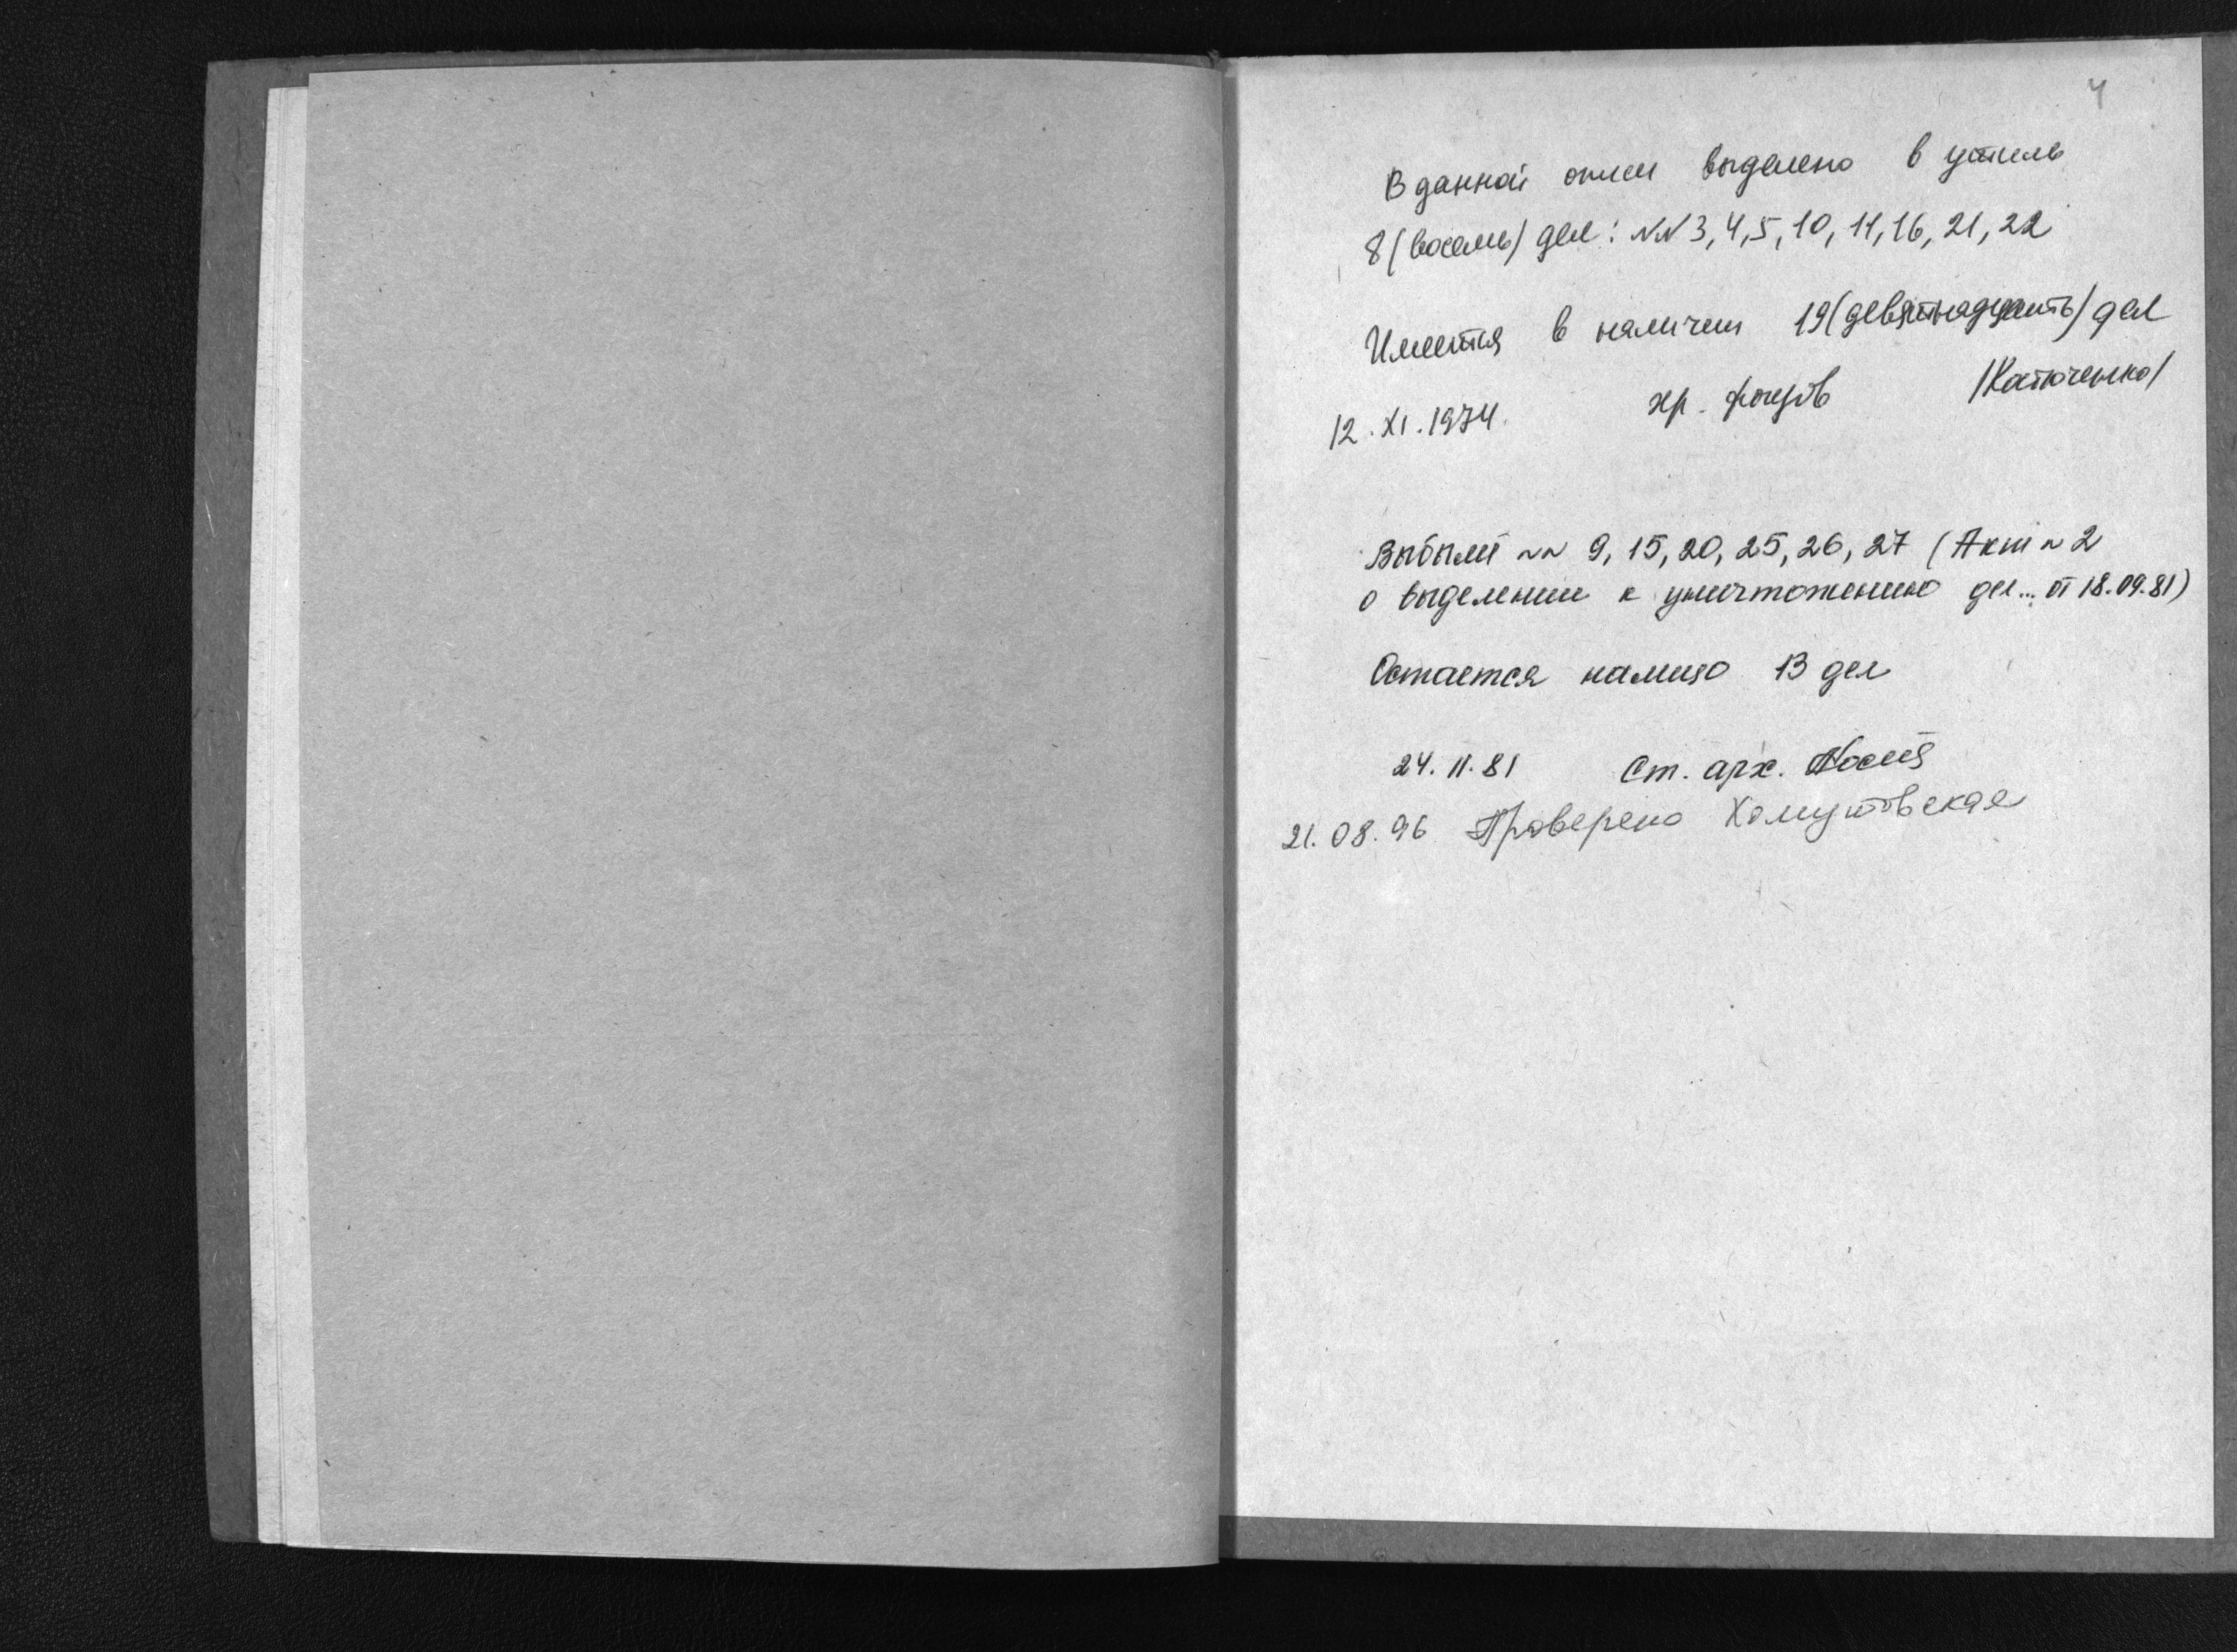 4
В данной описи выделено в утиль
8 (восемь) дел: NN 3, 4, 5, 10, 11, 16, 21, 22
Имеется в наличии 19 (девятнадцать) дел
12. XI. 1974. хр. фондов /Катюченко/
Выбыли NN 9, 15, 20, 25, 26, 27 (Акт N 2
о выделении к уничтожению дел... от 18.09.81)
Остается налицо 13 дел
24. 11. 81 Ст. арх.
21. 08. 96 Проверено Хомутовская